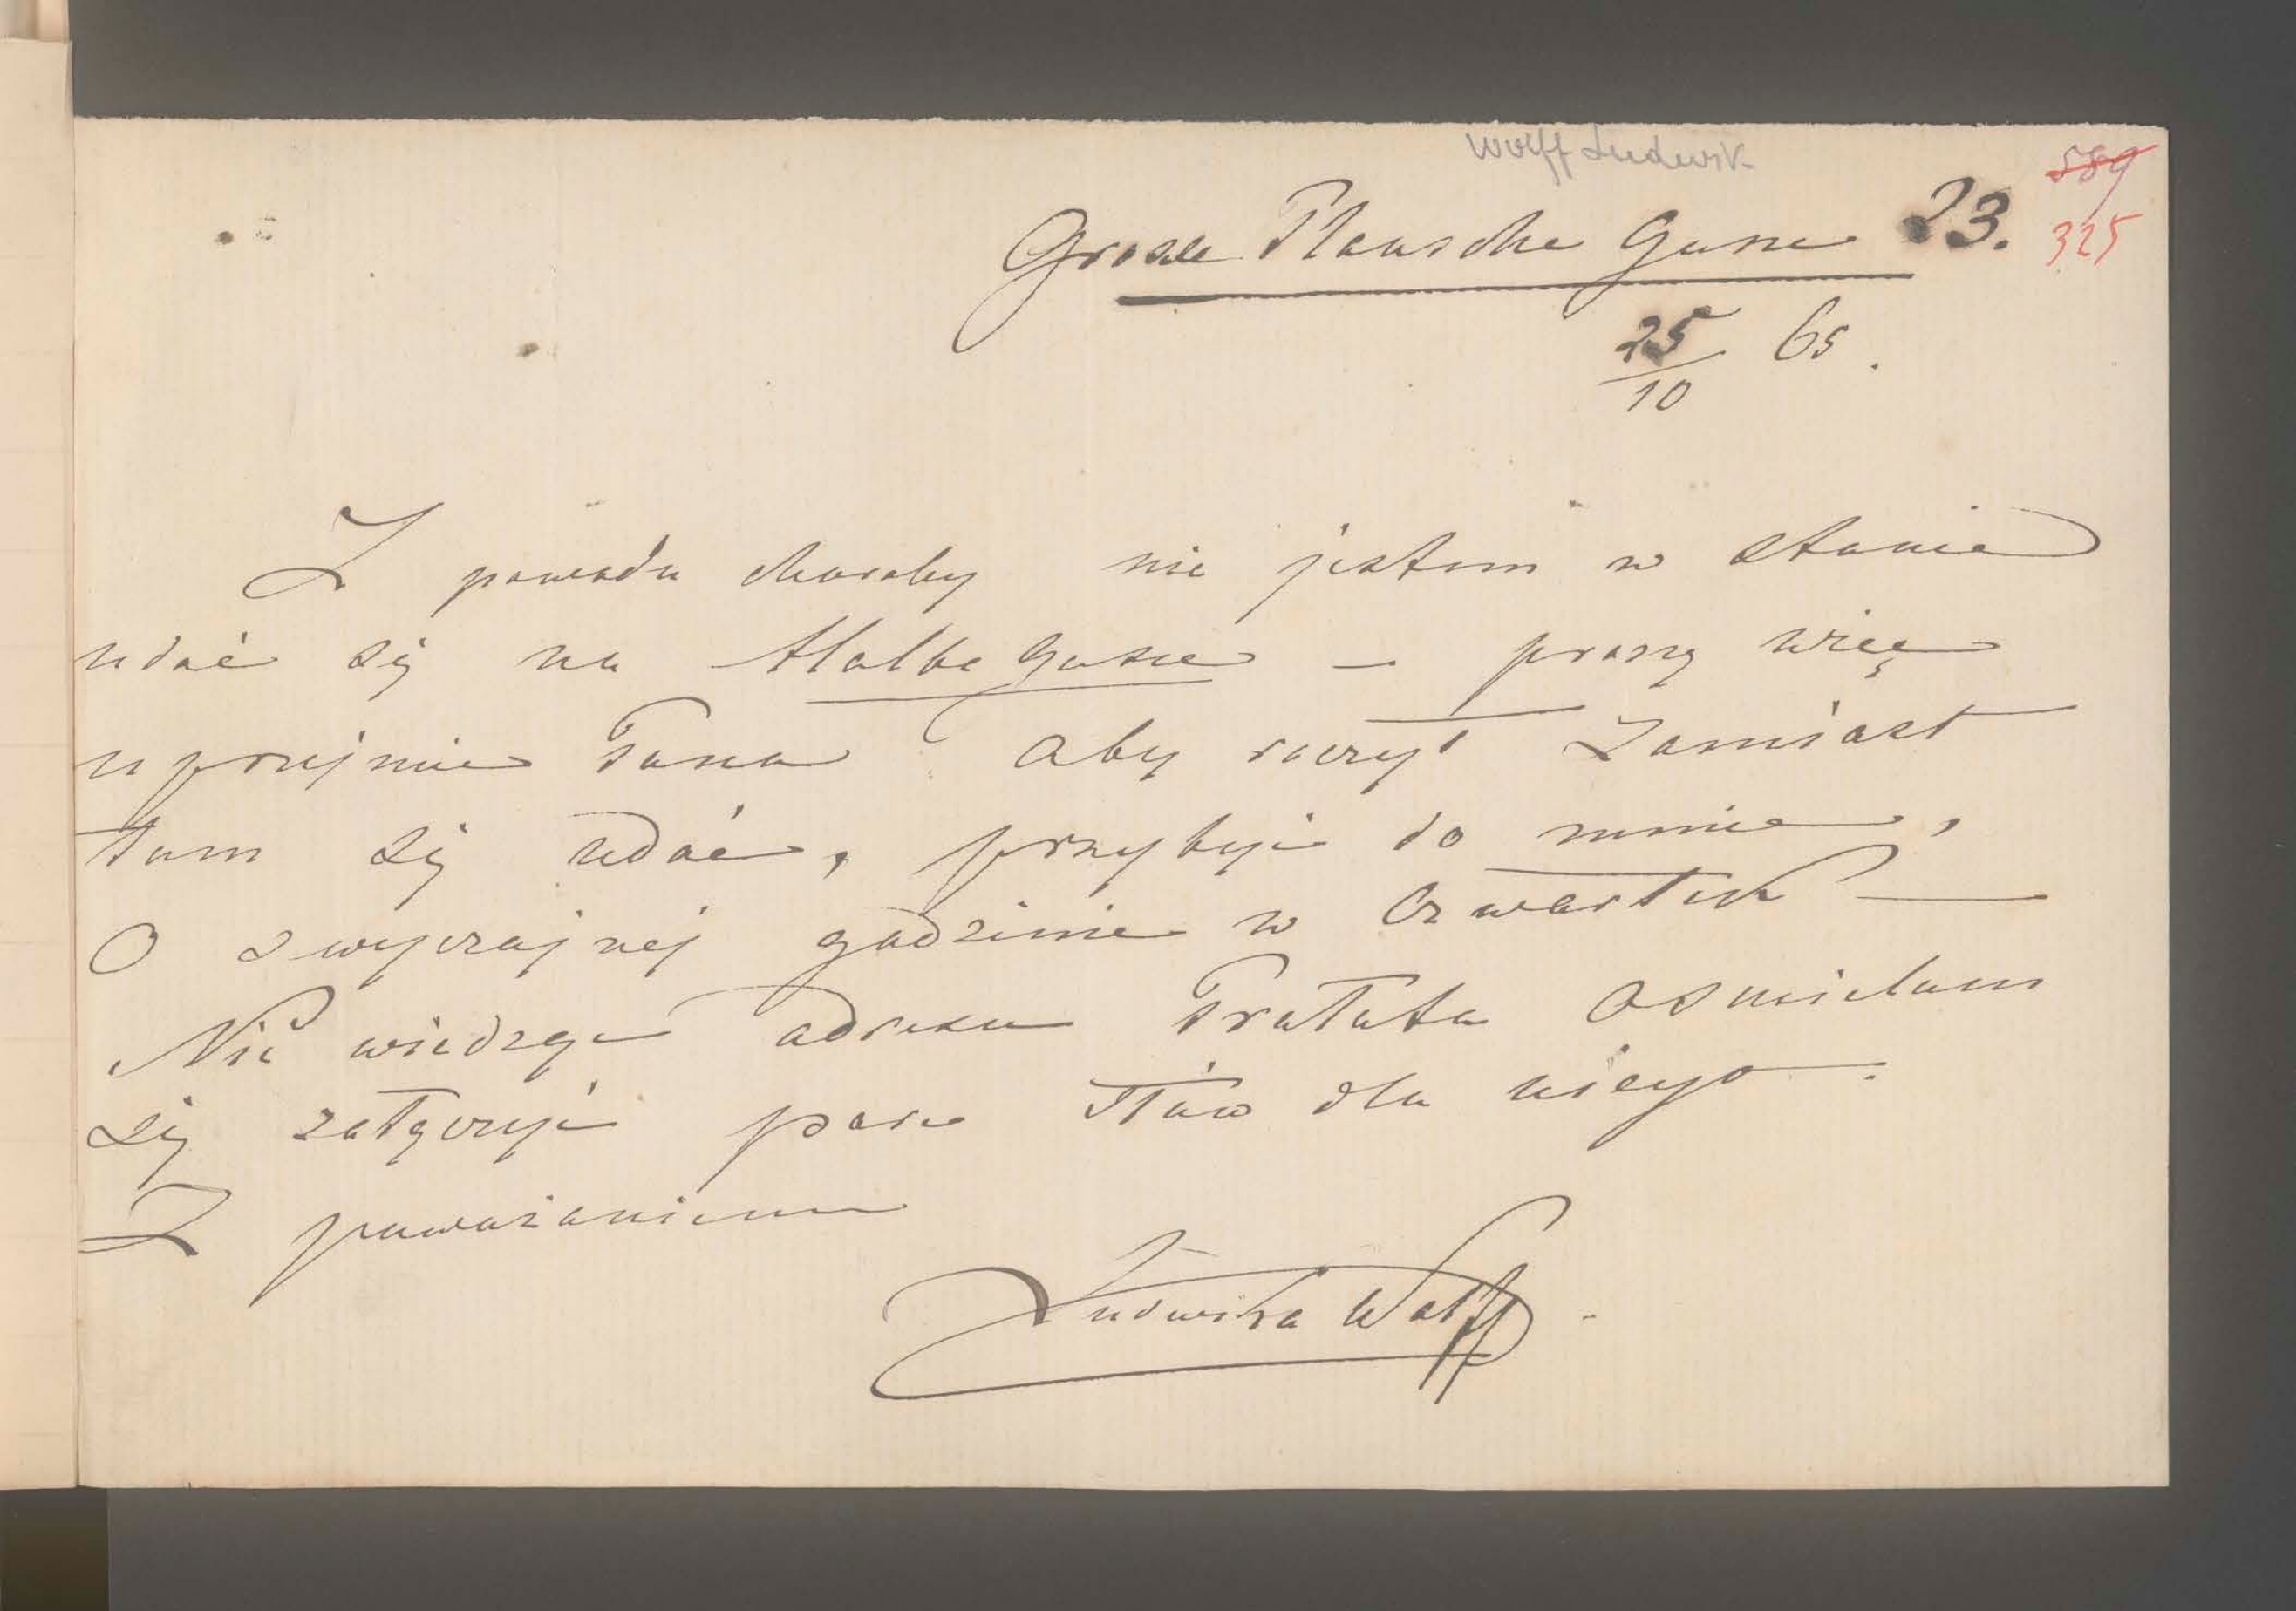 Wolff Ludwik
589
325
Grosse Plausche Gasse 23.
25/10 65.
Z powodu choroby nie jestem w stanie
udać się na Halbe Gasse – proszę więc
uprzejmie Pana aby raczył zamiast
tam się udać, przybyć do mnie,
O zwyczajnej godzinie w Czwartek —
Nie wiedząc adresu Prałata ośmielam
się załączyć parę słów dla niego.
Z poważaniem
Ludwika Wolff.